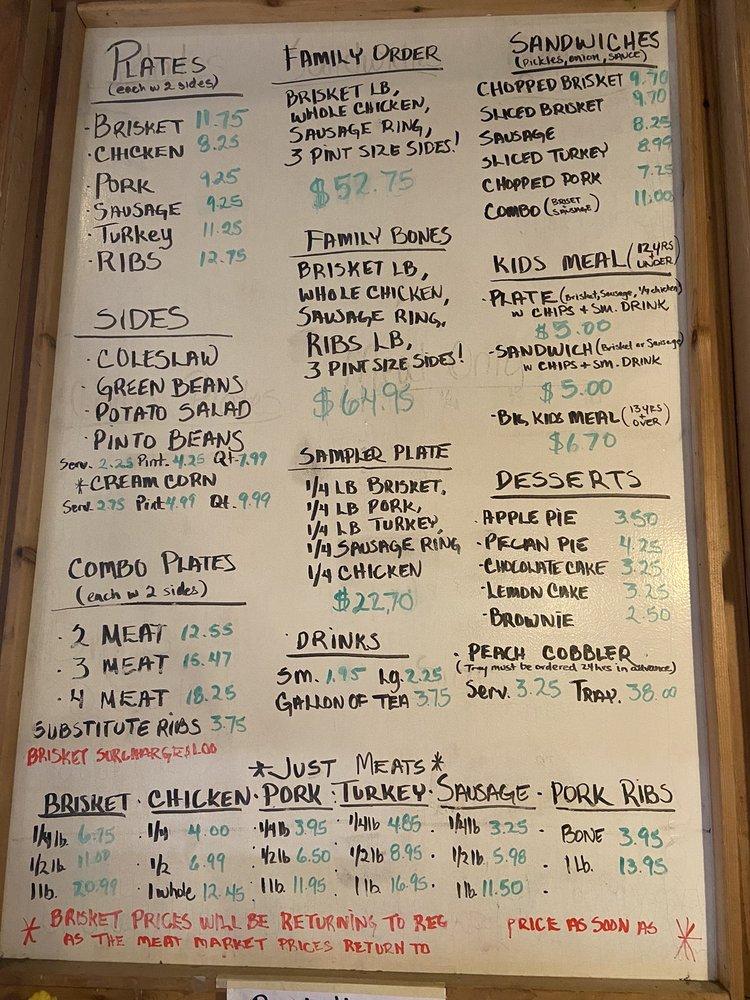 PLATES
(each w 2 sides)
·BRISKET 11.75
·CHICKEN 8.25
·PORK 9.25
·SAUSAGE 9.25
·TURKEY 11.25
·RIBS 12.75
SIDES
·COLESLAW
·GREEN BEANS
·POTATO SALAD
·PINTO BEANS
Serv. 2.25 Pint. 4.25 Qt. 7.99
*CREAM CORN
Serv. 2.75 Pint 4.99 Qt. 9.99
COMBO PLATES
(each w 2 sides)
·2 MEAT 12.55
·3 MEAT 15.47
·4 MEAT 18.25
SUBSTITUTE RIBS 3.75
BRISKET SURCHARGE $1.00
FAMILY ORDER
BRISKET LB,
WHOLE CHICKEN,
SAUSAGE RING,
3 PINT SIZE SIDES!
$52.75
FAMILY BONES
BRISKET LB,
WHOLE CHICKEN,
SAUSAGE RING,
RIBS LB,
3 PINT SIZE SIDES!
$64.95
SAMPLER PLATE
1/4 LB BRISKET,
1/4 LB PORK,
1/4 LB TURKEY,
1/4 SAUSAGE RING
1/4 CHICKEN
$22.70
·DRINKS
Sm. 1.95 Lg. 2.25
GALLON OF TEA 3.75
SANDWICHES
(Pickles, onion, sauce)
CHOPPED BRISKET 9.70
SLICED BRISKET 9.70
SAUSAGE 8.25
SLICED TURKEY 8.99
CHOPPED PORK 7.25
COMBO (BRISET SAUSAGE) 11.00
KIDS MEAL (12 YRS + UNDER)
·PLATE (Brisket, Sausage, 1/4 chicken)
W CHIPS + SM. DRINK
$5.00
·SANDWICH (Brisket or Sausage)
W CHIPS + SM. DRINK
$5.00
·BIG KIDS MEAL (13 YRS + OVER)
$6.70
DESSERTS
·APPLE PIE 3.50
·PECAN PIE 4.25
·CHOCOLATE CAKE 3.25
·LEMON CAKE 3.25
·BROWNIE 2.50
·PEACH COBBLER
(Tray must be ordered 24 hrs in advance)
Serv. 3.25 TRAY. 38.00
*JUST MEATS*
BRISKET · CHICKEN · PORK · TURKEY · SAUSAGE · PORK RIBS
1/4 lb 6.75 1/4 4.00 1/4 lb 3.95 1/4 lb 4.85 1/4 lb 3.25 BONE 3.95
1/2 lb 11.00 1/2 6.99 1/2 lb 6.50 1/2 lb 8.95 1/2 lb 5.98 1 lb. 13.95
1 lb. 20.99 1 whole 12.45 1 lb. 11.95 1 lb. 16.95 1 lb 11.50
* BRISKET PRICES WILL BE RETURNING TO REG PRICE AS SOON AS *
AS THE MEAT MARKET PRICES RETURN TO